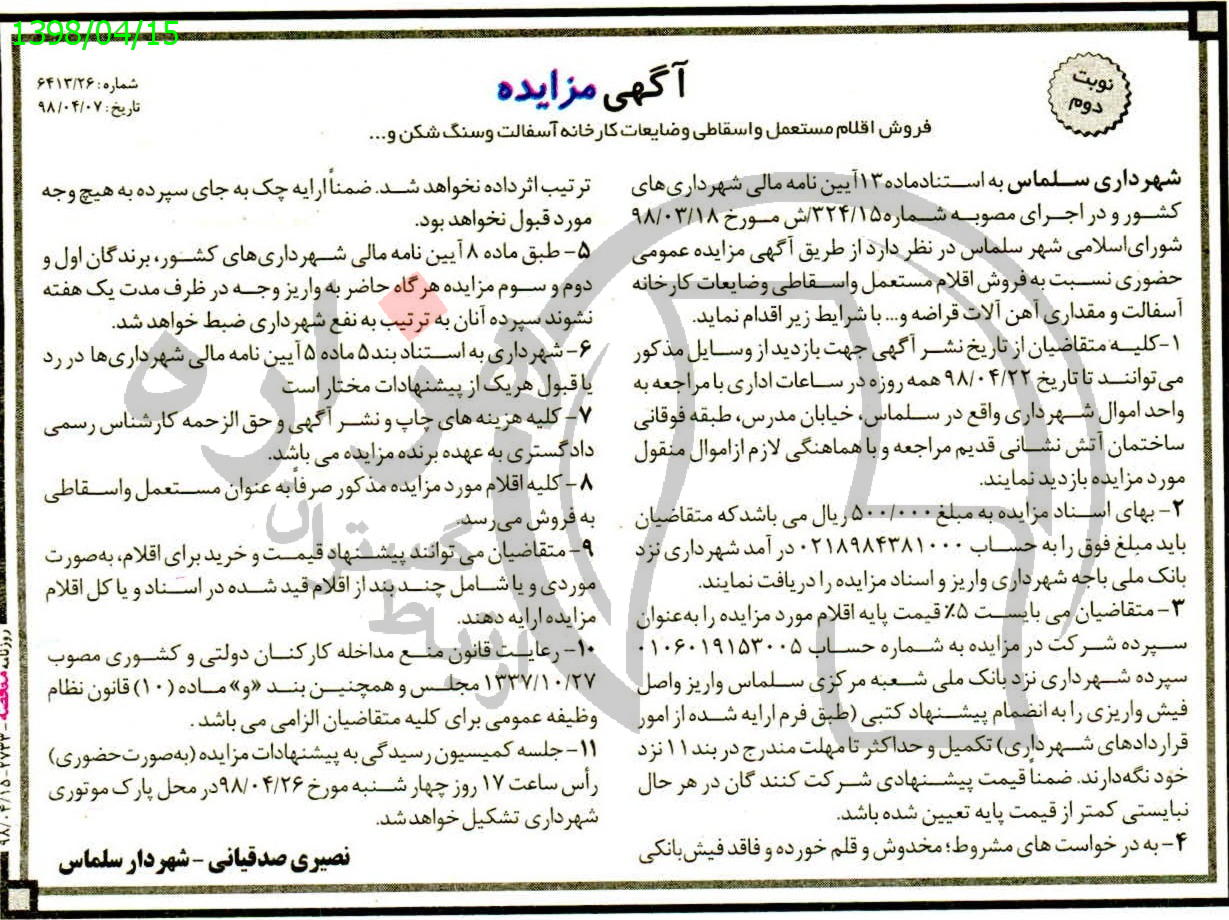 1398/04/15
نوبت
دوم
آگهی مزایده
شماره: ۶۴۱۳/۲۶
تاریخ: ۹۸/۰۴/۰۷
فروش اقلام مستعمل واسقاطی وضایعات کارخانه آسفالت وسنگ شکن و...
شهرداری سلماس به استنادماده ۱۳آیین نامه مالی شهرداری‌های
کشور و در اجرای مصوبه شماره۳۲۴/۱۵/ش مورخ ۹۸/۰۳/۱۸
شورای‌اسلامی شهر سلماس در نظر دارد از طریق آگهی مزایده عمومی
حضوری نسبت به فروش اقلام مستعمل واسقاطی وضایعات کارخانه
آسفالت و مقداری آهن آلات قراضه و... با شرایط زیر اقدام نماید.
۱-کلیه متقاضیان از تاریخ نشر آگهی جهت بازدید از وسایل مذکور
می توانند تا تاریخ ۹۸/۰۴/۲۲ همه روزه در ساعات اداری با مراجعه به
واحد اموال شهرداری واقع در سلماس، خیابان مدرس، طبقه فوقانی
ساختمان آتش نشانی قدیم مراجعه و با هماهنگی لازم ازاموال منقول
مورد مزایده بازدید نمایند.
۲- بهای اسناد مزایده به مبلغ ۵۰۰/۰۰۰ ریال می باشدکه متقاضیان
باید مبلغ فوق را به حساب ۰۲۱۸۹۸۴۳۸۱۰۰۰ در آمد شهرداری نزد
بانک ملی باجه شهرداری واریز و اسناد مزایده را دریافت نمایند.
۳- متقاضیان می بایست ۵٪ قیمت پایه اقلام مورد مزایده را به‌عنوان
سپرده شرکت در مزایده به شماره حساب ۰۱۰۶۰۱۹۱۵۳۰۰۵
سپرده شهرداری نزد بانک ملی شعبه مرکزی سلماس واریز واصل
فیش واریزی را به انضمام پیشنهاد کتبی (طبق فرم ارایه شده از امور
قراردادهای شهرداری) تکمیل و حداکثر تا مهلت مندرج در بند ۱۱ نزد
خود نگه‌دارند. ضمناً قیمت پیشنهادی شرکت کنندگان در هر حال
نبایستی کمتر از قیمت پایه تعیین شده باشد.
۴- به در خواست های مشروط؛ مخدوش و قلم خورده و فاقد فیش‌بانکی
ترتیب اثرداده نخواهد شد. ضمناً ارایه چک به جای سپرده به هیچ وجه
مورد قبول نخواهد بود.
۵- طبق ماده ۸ آیین نامه مالی شهرداری‌های کشور، برندگان اول و
دوم و سوم مزایده هرگاه حاضر به واریز وجه در ظرف مدت یک هفته
نشوند سپرده آنان به ترتیب به نفع شهرداری ضبط خواهد شد.
۶- شهرداری به استناد بند۵ ماده ۵ آیین نامه مالی شهرداری‌ها در رد
یا قبول هریک از پیشنهادات مختار است
۷- کلیه هزینه های چاپ و نشر آگهی و حق الزحمه کارشناس رسمی
دادگستری به عهده برنده مزایده می باشد.
۸- کلیه اقلام مورد مزایده مذکور صرفاً به عنوان مستعمل واسقاطی
به فروش می‌رسد.
۹- متقاضیان می توانند پیشنهاد قیمت و خرید برای اقلام، به‌صورت
موردی و یا شامل چند بند از اقلام قید شده در اسناد و یا کل اقلام
مزایده ارایه دهند.
۱۰- رعایت قانون منع مداخله کارکنان دولتی و کشوری مصوب
۱۳۳۷/۱۰/۲۷ مجلس و همچنین بند «و» ماده (۱۰) قانون نظام
وظیفه عمومی برای کلیه متقاضیان الزامی می باشد .
۱۱- جلسه کمیسیون رسیدگی به پیشنهادات مزایده (به‌صورت‌حضوری)
رأس ساعت ۱۷ روز چهار شنبه مورخ ۹۸/۰۴/۲۶در محل پارک موتوری
شهرداری تشکیل خواهد شد.
نصیری صدقیانی - شهردار سلماس
روزنامه مناقصه - ۲۷۳۳ - ۹۸/۰۴/۱۵
هزاره